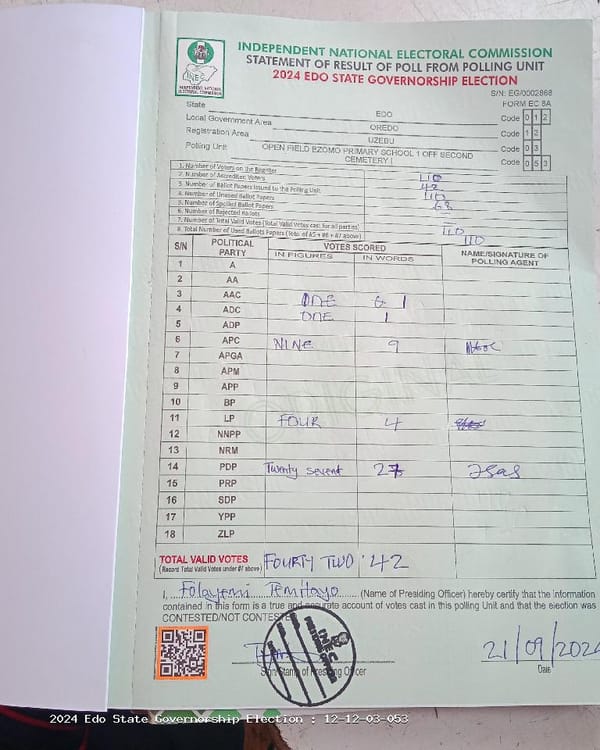 INDEPENDENT NATIONAL ELECTORAL COMMISSION
STATEMENT OF RESULT OF POLL FROM POLLING UNIT
2024 EDO STATE GOVERNORSHIP ELECTION
S/N: EG/0002868
FORM EC 8A
State EDO Code 0 1 2
Local Government Area OREDO Code 1 2
Registration Area UZEBU Code 0 3
Polling Unit OPEN FIELD EZOMO PRIMARY SCHOOL 1 OFF SECOND CEMETERY I Code 0 5 3
1. Number of Voters on the Register 110
2. Number of Accredited Voters 42
3. Number of Ballot Papers Issued to the Polling Unit 110
4. Number of Unused Ballot Papers 68
5. Number of Spoiled Ballot Papers
6. Number of Rejected Ballots
7. Number of Total Valid Votes (Total Valid Votes cast for all parties) 110
8. Total Number of Used Ballots Papers (Total of #5 + #6 + #7 above) 110
S/N POLITICAL PARTY VOTES SCORED NAME/SIGNATURE OF POLLING AGENT
IN FIGURES IN WORDS
1 A
2 AA
3 AAC ONE 1
4 ADC ONE 1
5 ADP
6 APC NINE 9
7 APGA
8 APM
9 APP
10 BP
11 LP FOUR 4
12 NNPP
13 NRM
14 PDP Twenty seven 27
15 PRP
16 SDP
17 YPP
18 ZLP
ORIGINAL
TOTAL VALID VOTES FOURTY TWO 42
(Record Total Valid Votes under #7 above)
I, Folayemi Temitayo (Name of Presiding Officer) hereby certify that the information
contained in this form is a true and accurate account of votes cast in this polling Unit and that the election was
CONTESTED/NOT CONTESTED
21/09/2024
Sign/Stamp of Presiding Officer Date
2024 Edo State Governorship Election : 12-12-03-053